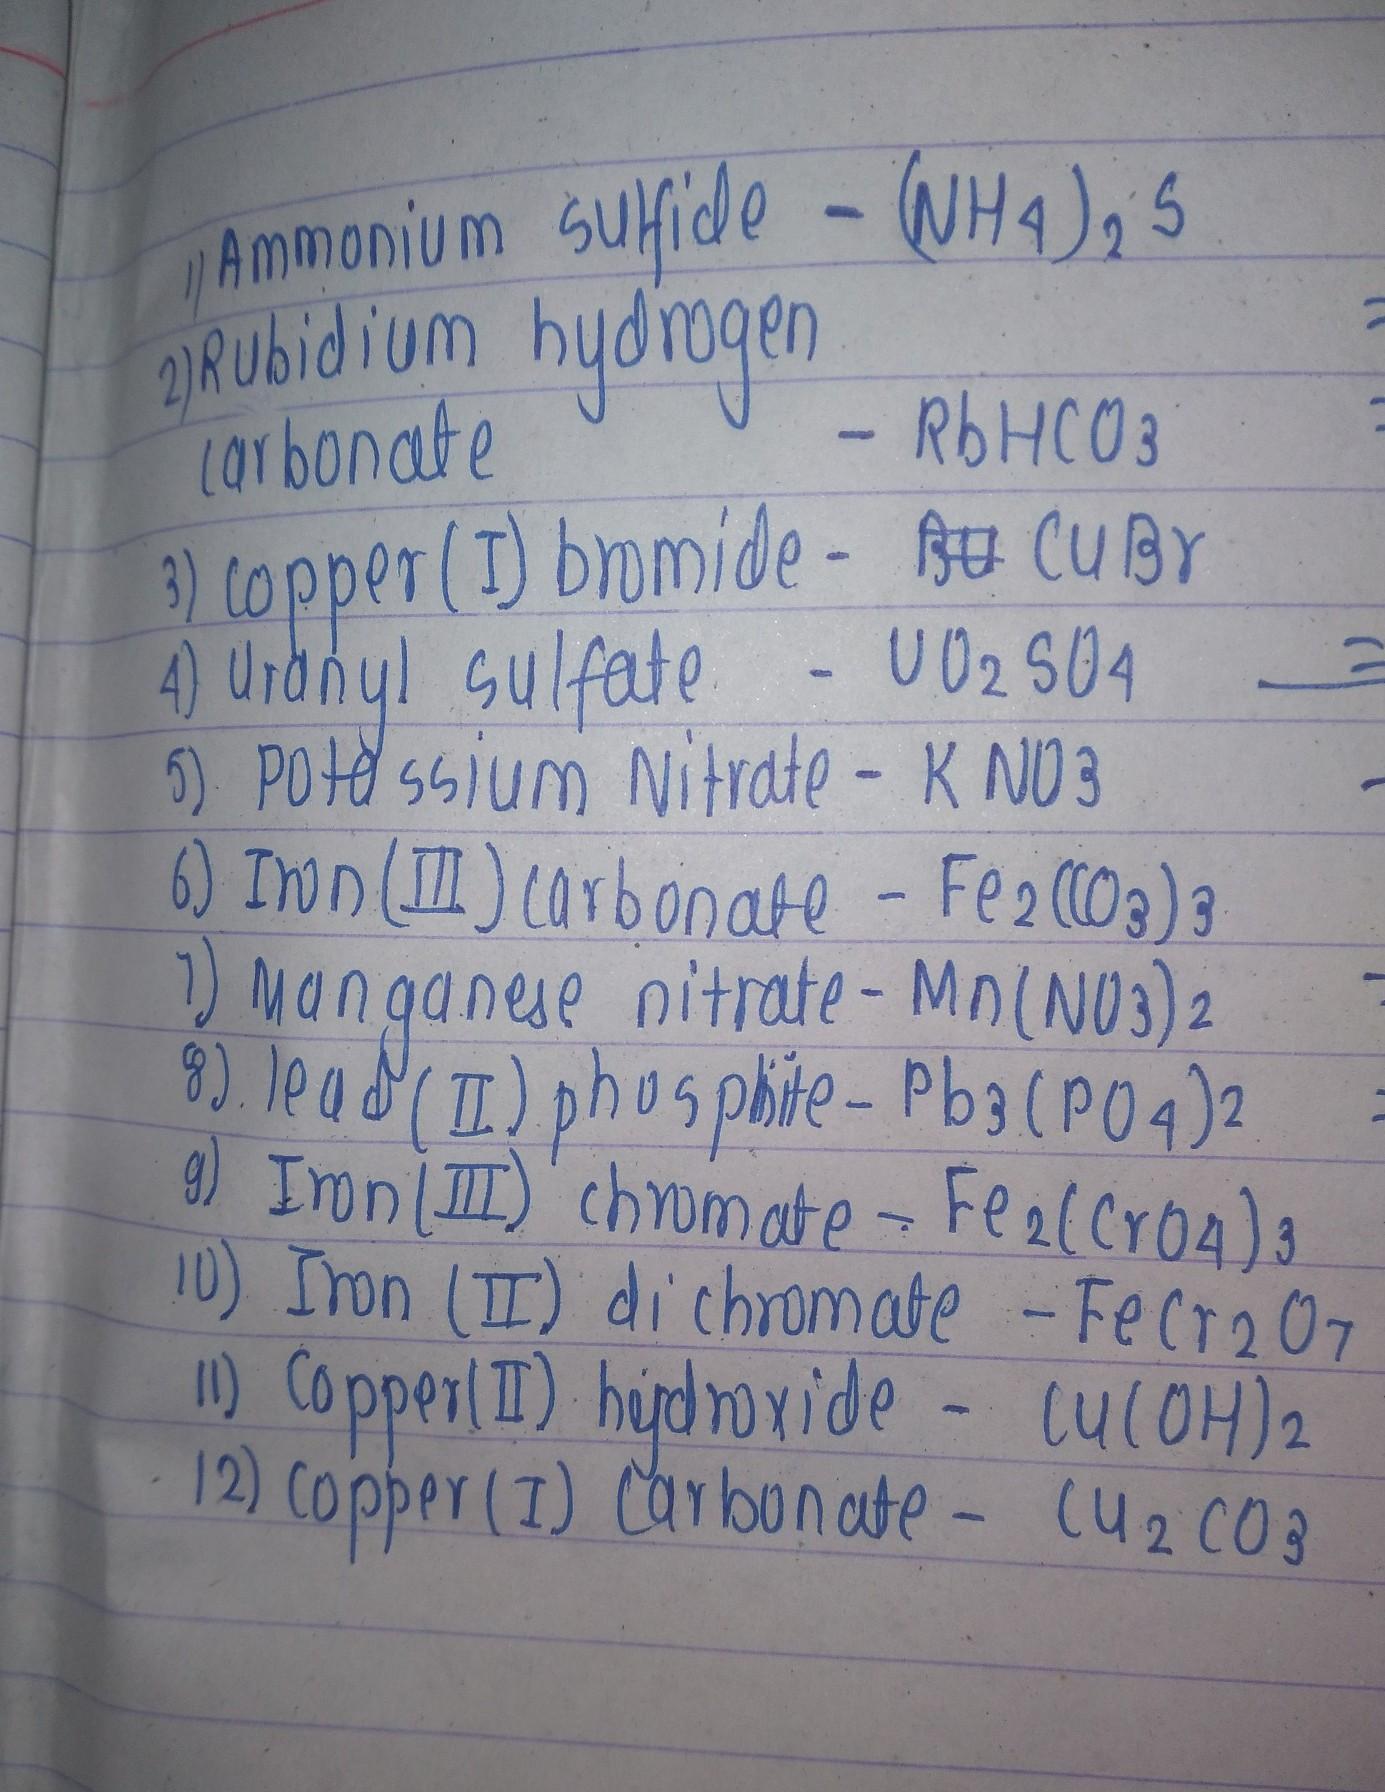 1) Ammonium sulfide - (NH4)2 S
2) Rubidium hydrogen
carbonate - RbHCO3
3) Copper (I) bromide - CuBr
4) Uranyl sulfate - UO2 SO4
5) Potassium Nitrate - K NO3
6) Iron (III) carbonate - Fe2(CO3)3
7) Manganese nitrate - Mn(NO3)2
8). lead (II) phosphite - Pb3(PO4)2
9) Iron (III) chromate - Fe2(CrO4)3
10) Iron (II) dichromate - FeCr2O7
11) Copper(II) hydroxide - Cu(OH)2
12) Copper (I) Carbonate - Cu2 CO3